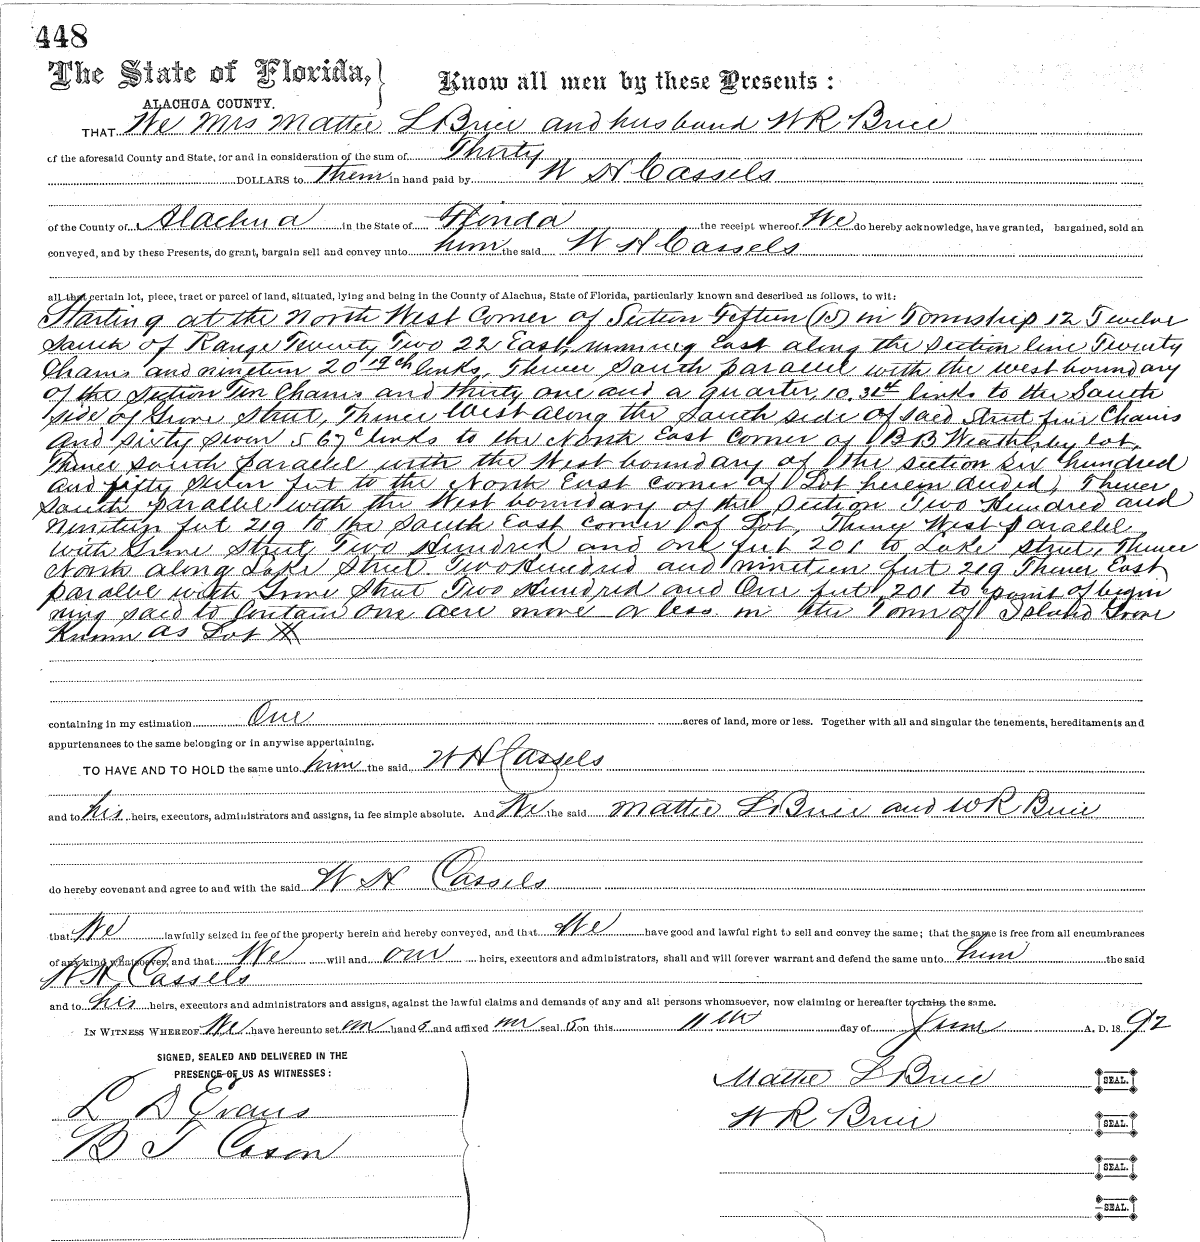 448
The State of Florida,
ALACHUA COUNTY.
Know all men by these Presents:
THAT We Mrs Mattie L Brice and husband W R Brice
of the aforesaid County and State, for and in consideration of the sum of Thirty
DOLLARS to them in hand paid by W H Cassels
of the County of Alachua in the State of Florida the receipt whereof We do hereby acknowledge, have granted, bargained, sold an
conveyed, and by these Presents, do grant, bargain sell and convey unto him the said W H Cassels
all that certain lot, piece, tract or parcel of land, situated, lying and being in the County of Alachua, State of Florida, particularly known and described as follows, to wit:
Starting at the North West Corner of Section Fifteen (15) in Township 12 Twelve
South of Range Twenty Two 22 East, running East along the section line Twenty
Chains and nineteen 20 19 ch links, Thence South parallel with the west boundary
of the Section Ten Chains and thirty one and a quarter, 10.31 links to the South
side of Grove Street, Thence West along the South side of said Street five Chains
and sixty seven 5 67 links to the North East Corner of B B Weatherby lot,
Thence South parallel with the West boundary of the section Six hundred
and fifty seven feet to the North East corner of Lot herein deeded, Thence
South parallel with the West boundary of the Section Two Hundred and
Nineteen feet 219 to the South East corner of Lot, Thence West parallel
with Grove Street Two Hundred and one feet 201 to Lake Street, Thence
North along Lake Street Two Hundred and nineteen feet 219 Thence East
parallel with Grove Street Two Hundred and One feet 201 to point of begin
ning said to Contain one acre more or less in the Town of Island Grove
Known as Lot
containing in my estimation One acres of land, more or less. Together with all and singular the tenements, hereditaments and
appurtenances to the same belonging or in anywise appertaining.
TO HAVE AND TO HOLD the same unto him the said W H Cassels
and to his heirs, executors, administrators and assigns, in fee simple absolute. And We the said Mattie L Brice and W R Brice
do hereby covenant and agree to and with the said W H Cassels
that We lawfully seized in fee of the property herein and hereby conveyed, and that We have good and lawful right to sell and convey the same; that the same is free from all encumbrances
of any kind whatsoever, and that We will and our heirs, executors and administrators, shall and will forever warrant and defend the same unto him the said
W H Cassels
and to his heirs, executors and administrators and assigns, against the lawful claims and demands of any and all persons whomsoever, now claiming or hereafter to claim the same.
IN WITNESS WHEREOF We have hereunto set our hand s and affixed our seal s on this 11th day of June A. D. 1892
SIGNED, SEALED AND DELIVERED IN THE
PRESENCE OF US AS WITNESSES:
L D Evans
B T Cason
Mattie L Brice SEAL.
W R Brice SEAL.
SEAL.
SEAL.